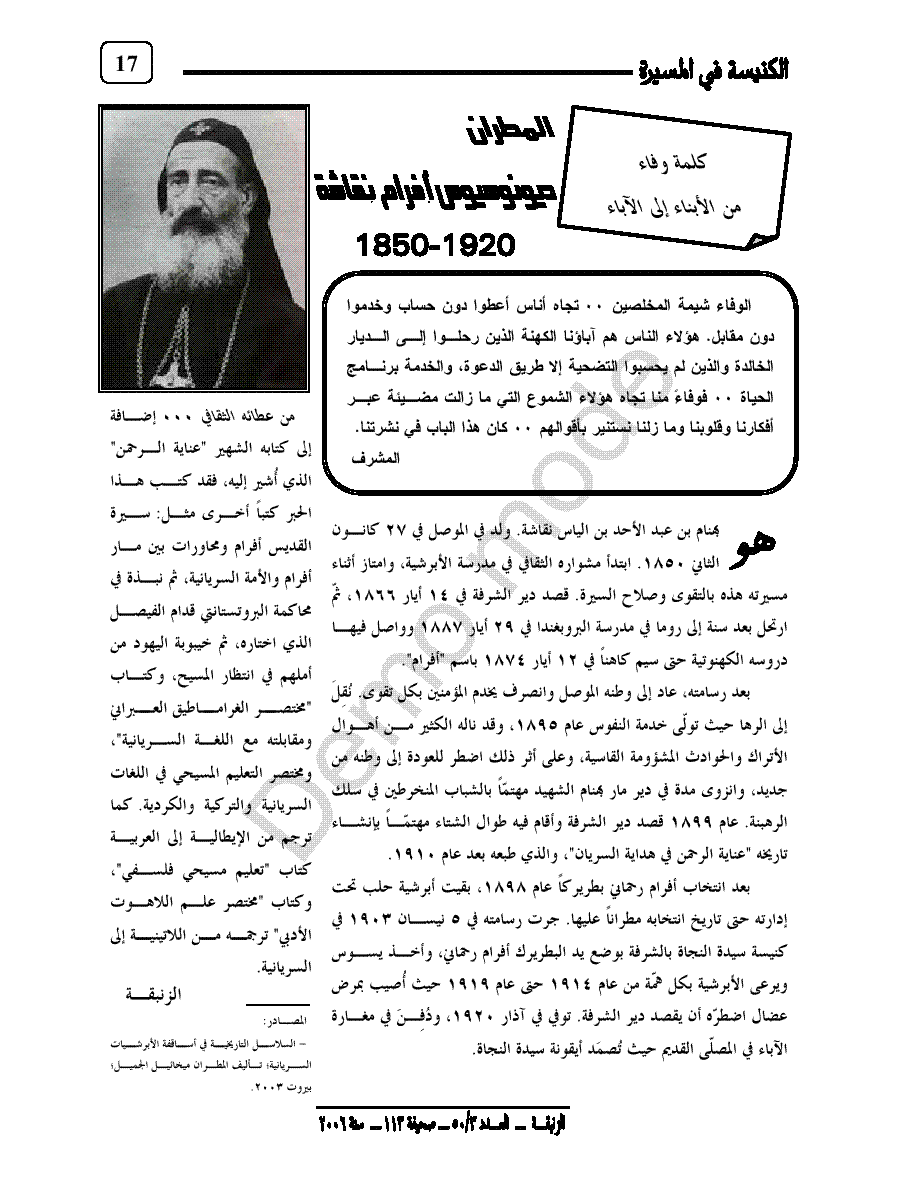 الكنيسة في المسيرة
17
كلمة وفاء
من الأبناء إلى الآباء
المطران
ديونوسيوس أفرام نقاشة
1850-1920
الوفاء شيمة المخلصين ٠٠ تجاه أناس أعطوا دون حساب وخدموا
دون مقابل. هؤلاء الناس هم آباؤنا الكهنة الذين رحلـــوا إلـــى الـــديار
الخالدة والذين لم يحسبوا التضحية إلا طريق الدعوة، والخدمة برنـــامج
الحياة ٠٠ فوفاءً منا تجاه هؤلاء الشموع التي ما زالت مضـــيئة عبـــر
أفكارنا وقلوبنا وما زلنا نستنير بأقوالهم ٠٠ كان هذا الباب في نشرتنا.
المشرف
هو بهنام بن عبد الأحد بن الياس نقاشة. ولد في الموصل في ٢٧ كانـــون
الثاني ١٨٥٠. ابتدأ مشواره الثقافي في مدرسة الأبرشية، وامتاز أثناء
مسيرته هذه بالتقوى وصلاح السيرة. قصد دير الشرفة في ١٤ أيار ١٨٦٦، ثمّ
ارتحل بعد سنة إلى روما في مدرسة البروبغندا في ٢٩ أيار ١٨٨٧ وواصل فيهـــا
دروسه الكهنوتية حتى سيم كاهناً في ١٢ أيار ١٨٧٤ باسم "أفرام".
بعد رسامته، عاد إلى وطنه الموصل وانصرف يخدم المؤمنين بكل تقوى. نُقِلَ
إلى الرها حيث تولّى خدمة النفوس عام ١٨٩٥، وقد ناله الكثير مـــن أهـــوال
الأتراك والحوادث المشؤومة القاسية، وعلى أثر ذلك اضطر للعودة إلى وطنه من
جديد، وانزوى مدة في دير مار بهنام الشهيد مهتمّاً بالشباب المنخرطين في سلك
الرهبنة. عام ١٨٩٩ قصد دير الشرفة وأقام فيه طوال الشتاء مهتمّـــاً بإنشـــاء
تاريخه "عناية الرحمن في هداية السريان"، والذي طبعه بعد عام ١٩١٠.
بعد انتخاب أفرام رحماني بطريركاً عام ١٨٩٨، بقيت أبرشية حلب تحت
إدارته حتى تاريخ انتخابه مطراناً عليها. جرت رسامته في ٥ نيســـان ١٩٠٣ في
كنيسة سيدة النجاة بالشرفة بوضع يد البطريرك أفرام رحماني، وأخـــذ يســـوس
ويرعى الأبرشية بكل همّة من عام ١٩١٤ حتى عام ١٩١٩ حيث أُصيب بمرض
عضال اضطرّه أن يقصد دير الشرفة. توفي في آذار ١٩٢٠، ودُفِـــنَ في مغـــارة
الآباء في المصلّى القديم حيث تُصمَد أيقونة سيدة النجاة.
من عطائه الثقافي ٠٠٠ إضـــافة
إلى كتابه الشهير "عناية الـــرحمن"
الذي أُشير إليه، فقد كتـــب هـــذا
الحبر كتباً أخـــرى مثـــل: ســـيرة
القديس أفرام ومحاورات بين مـــار
أفرام والأمة السريانية، ثم نبـــذة في
محاكمة البروتستانتي قدام الفيصـــل
الذي اختاره، ثم خيبوبة اليهود من
أملهم في انتظار المسيح، وكتـــاب
"مختصـــر الغرامـــاطيق العـــبراني
ومقابلته مع اللغـــة الســـريانية"،
ومختصر التعليم المسيحي في اللغات
السريانية والتركية والكردية. كما
ترجم من الإيطاليـــة إلى العربيـــة
كتاب "تعليم مسيحي فلســـفي"،
وكتاب "مختصر علـــم اللاهـــوت
الأدبي" ترجمـــه مـــن اللاتينيـــة إلى
السريانية.
الزنبقـــة
المصـــادر:
– السلاســـل التاريخيـــة في أســـاقفة الأبرشـــيات
الســـريانية؛ تـــأليف المطـــران ميخائيـــل الجميـــل؛
بيروت ٢٠٠٣.
الزنبقـــة – العـــدد ٥٠/٣ – صحيفة ١١٣ – سنة ٢٠٠٦
Demo mode